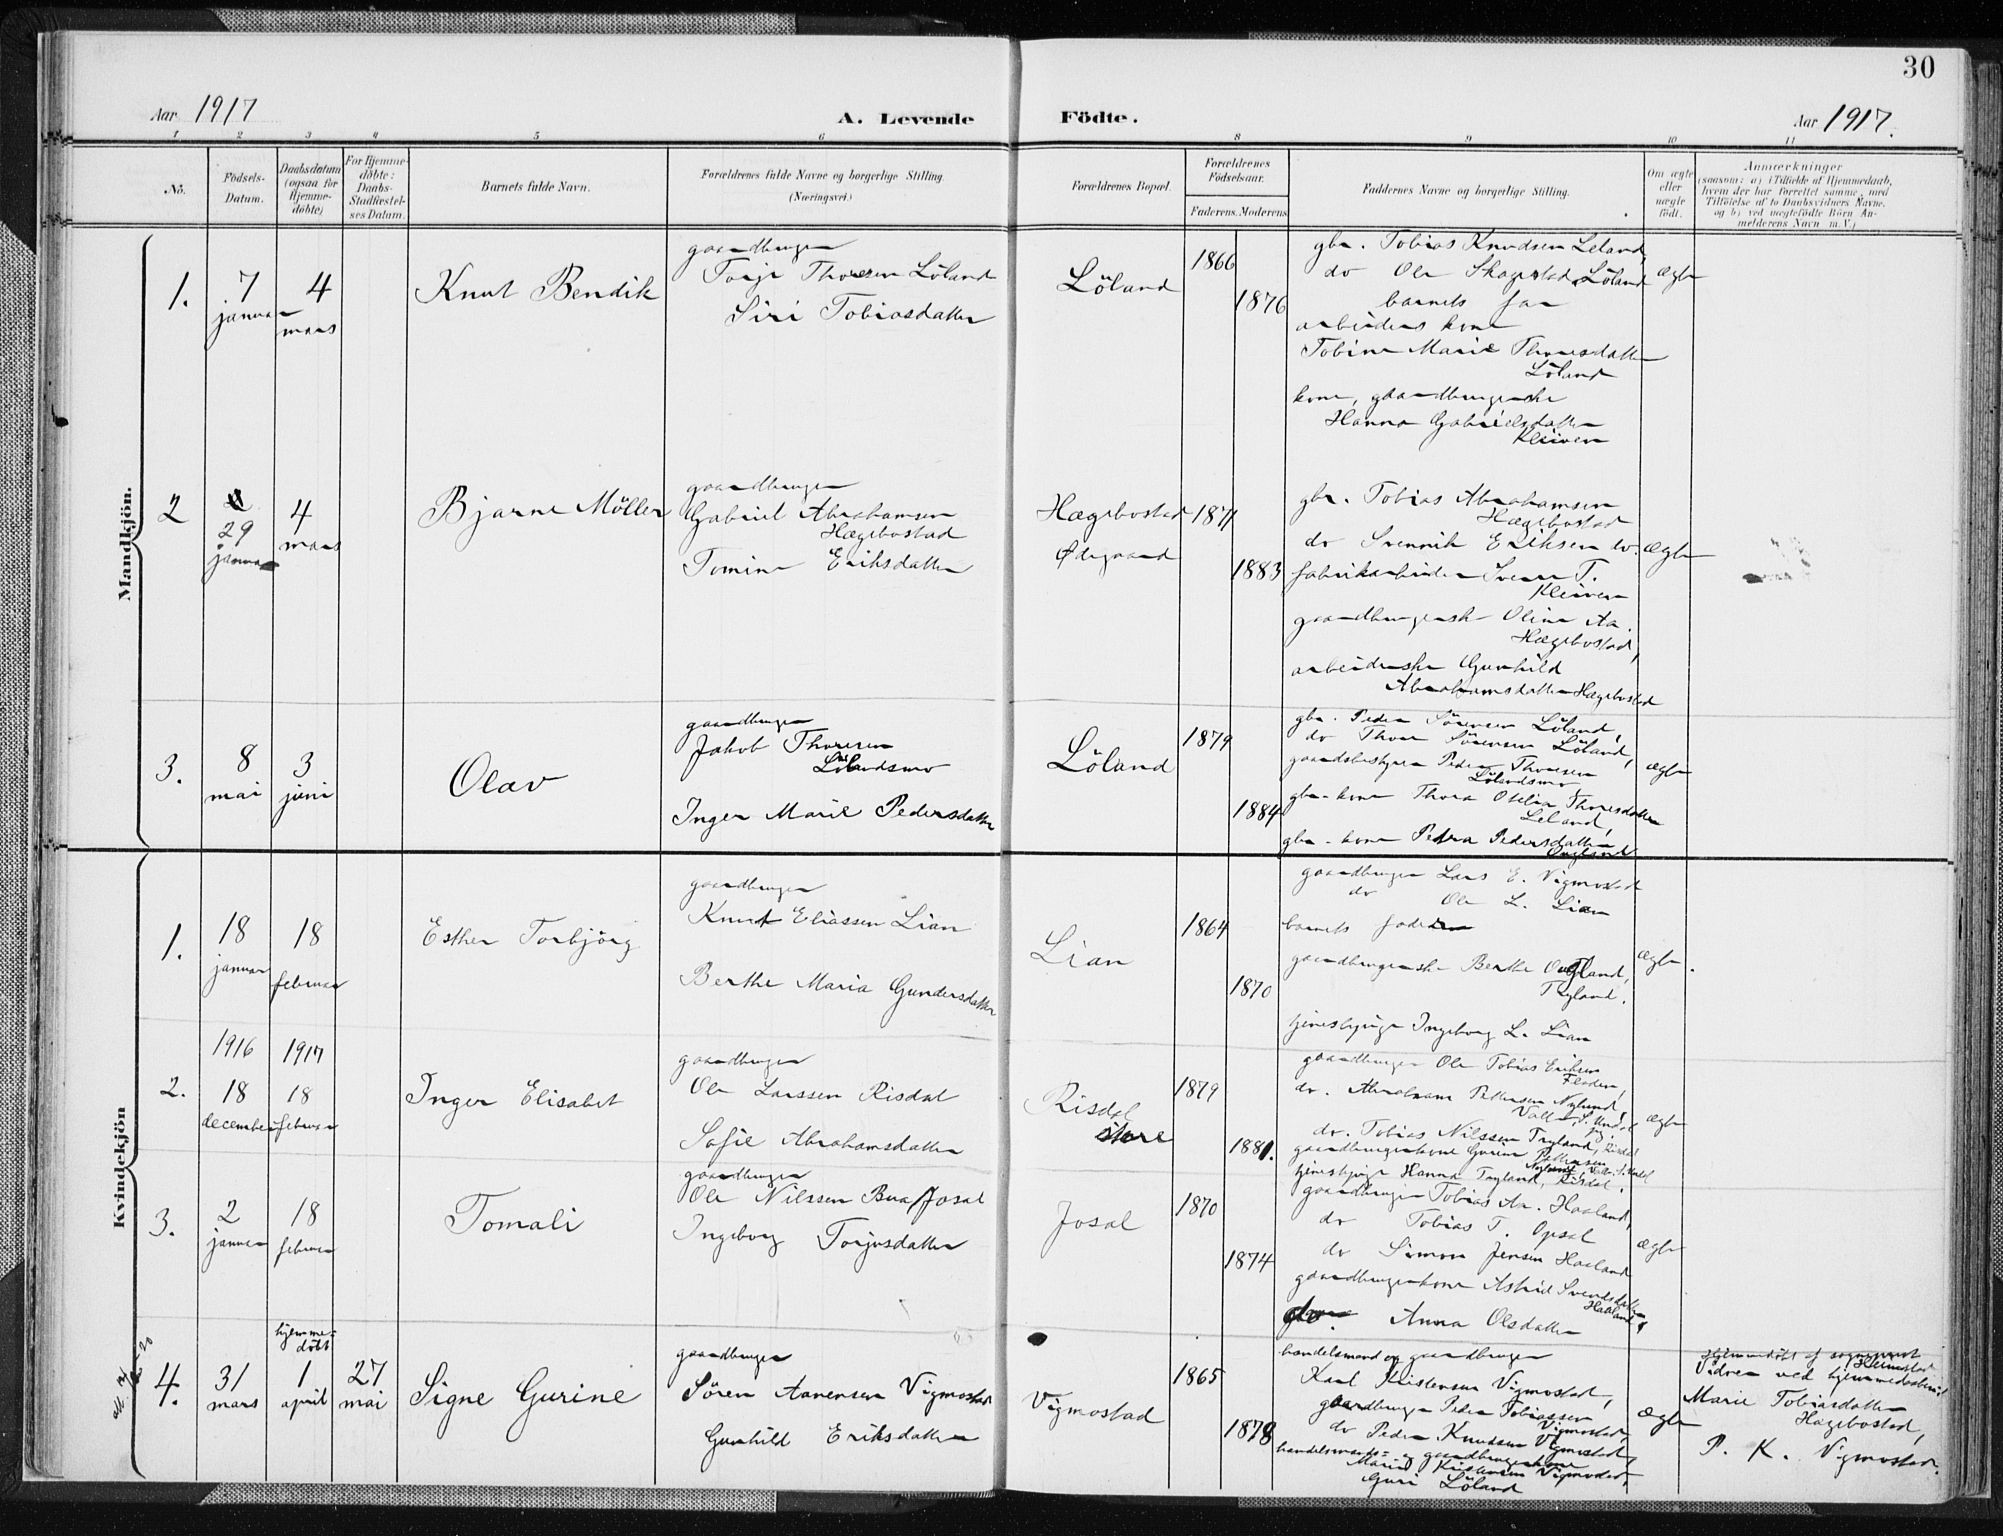 30
Aar 1917
A. Levende Födte.
Aar 1917.
1 2 3 4 5 6 8 9 10 11
No.
Födsels-
Datum.
Daabsdatum
(ogsaa for
Hjemme-
döbte)
For Hjemme-
döbte:
Daabs-
Stadfæstel-
ses Datum.
Barnets fulde Navn.
Forældrenes fulde Navne og borgerlige Stilling.
(Næringsvei.)
Forældrenes Bopæl.
Forældrenes
Födselsaar.
Faderens. Moderens
Faddernes Navne og borgerlige Stilling.
Om ægte
eller
uægte
födt.
Anmærkninger
(saasom: a) i Tilfælde af Hjemmedaab,
hvem der har forrettet samme, med
Tilföielse af to Daabsvidners Navne.
og b) ved uægtefödte Börn An-
melderens Navn m. V.)
Mandkjön.
1.
7
januar
4
mars
Knut Bendik
gaardbruger
Torje Thoresen Löland
Siri Tobiasdatter
Löland
1866
1876
gbr. Tobias Knudsen Leland
do Ole Skagestad, Löland
barnets far
arbeiders kone
Tobine Marie Thoresdatter
Löland
kone, gaardbrugerske
Hanna Gabrielsdatter
Kleiven
ægte
2
29
januar
4
mars
Bjarne Möller
gaardbruger
Gabriel Abrahamsen
Hægebostad
Tomine Eriksdatter
Hægebostad
Ødegaard
1871
1883
gbr. Tobias Abrahamsen
Hægebostad
do Svennik Eriksen do.
fabrikarbeider Svenn T.
Kleiven
gaardbrugerske Oline Aa.
Hægebostad,
arbeiderske Gunhild
Abrahamsdatter Hægebostad
ægte
3.
8
mai
3
juni
Olav
gaardbruger
Jakob Thoresen
Lölandsmo
Inger Marie Pedersdatter
Löland
1879
1884
gbr. Peder Sörensen Löland,
do Thore Sörensen Löland,
gaardsbestyrer Peder Thoresen
Lölandsmo,
gbr.-kone Thora Otelia Thoresdatter
Leland,
gbr.-kone Petra Pedersdatter
ægte
Kvindekjön
1.
18
januar
18
februar
Esther Torbjörg
gaardbruger
Knut Eliassen Lian
Berthe Maria Gundersdatter
Lian
1864
1870
gaardbruger Lars E. Vigmostad
do Ole L. Lian
barnets fader
gaardbrugerske Berthe
Tryland.
tjenestepige Ingeborg L. Lian
ægte.
2.
1916
18
december
1917
18
februar
Inger Elisabet
gaardbruger
Ole Larssen Risdal
Sofie Abrahamsdatter
Risdal
store
1879
1881.
gaardbruger Ole Tobias Eriksen
do. Abraham Pettersen Nylund,
Valle, S. Undal
do. Tobias Nilssen Tryland, Risdal
gaardbrugerkone Gurine Pettersen
Nylund, Valle, S. Undal
tjenestepige Hanna Tryland, Risdal.
ægte
3.
2
januar
18
februar
Tomali
gaardbruger
Ole Nilssen Bua/Josal
Ingeborg Torjusdatter
Josal
1870
1874
gaardbruger Tobias Aa. Haaland,
do Tobias T. Opsal
do Simon Jensen Haaland
gaardbrugerkone Astrid Svendsdatter
Haaland,
Anna Olsdatter
ægte
4.
31
mars
hjemme-
döbt
1
april
27
mai
Signe Gurine
gaardbruger
Sören Aanensen Vigmostad
Gunhild Eriksdatter
Vigmostad
1865
1878
handelsmand og gaardbruger
Karl Kristensen Vigmostad,
gaardbruger Peder Tobiassen
Vigmostad,
do Peder Knudsen Vigmostad,
handelsmands- og gaardbrugerkone
Marie Kristensen Vigmostad,
Guri Löland
ægte
Hjemmedöbt af
Vidner ved hjemmedaaben:
Marie Tobiasdatter
Hægebostad,
P. K. Vigmostad.